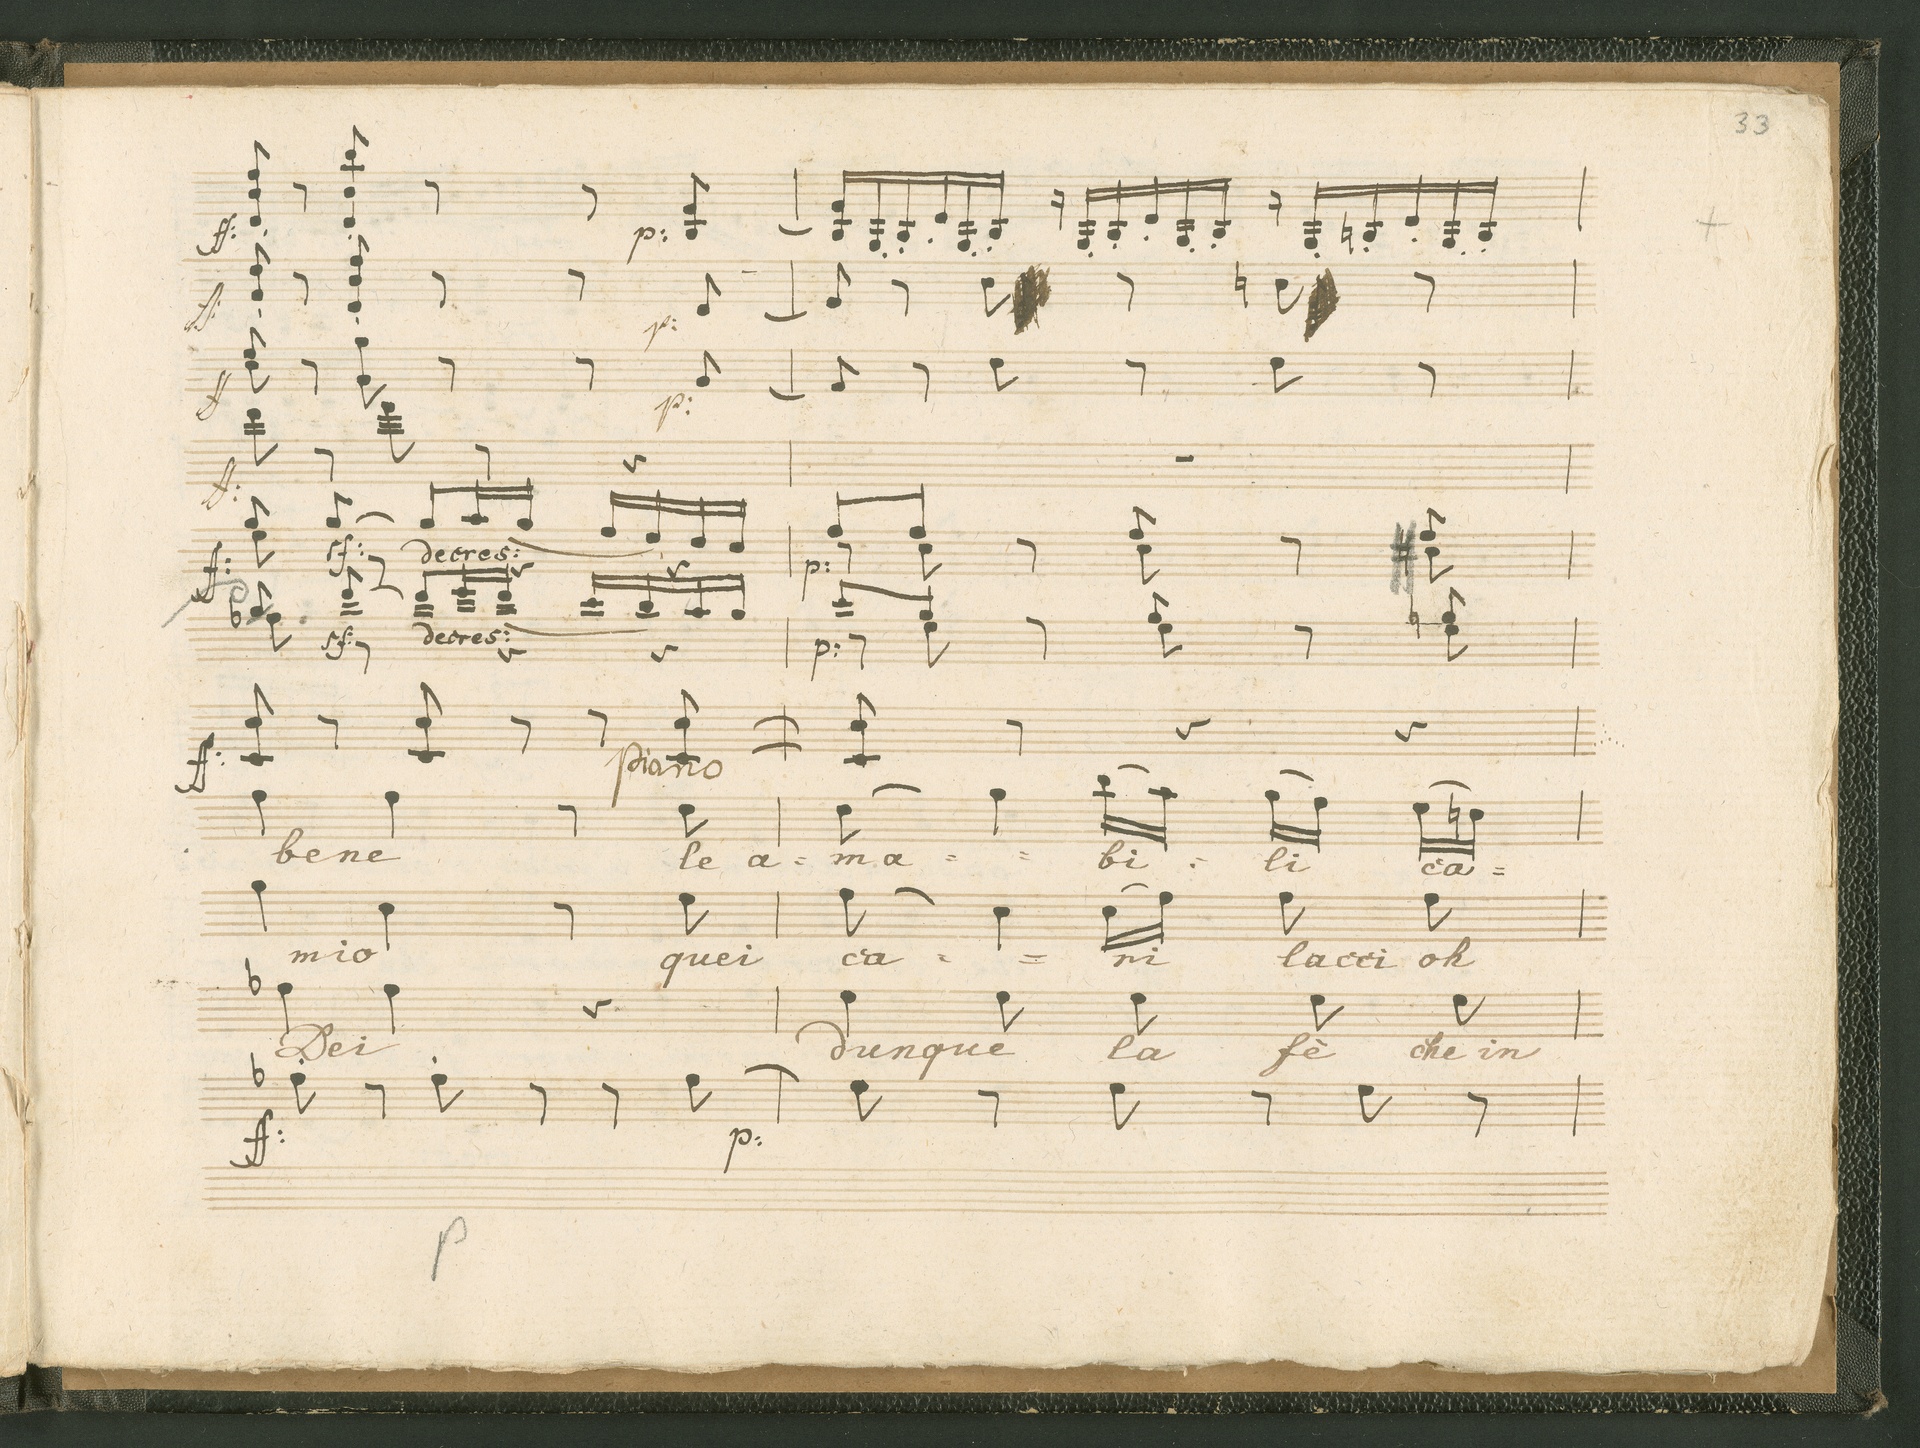 33
ff: p:
ff: p:
ff p:
ff:
ff: sf: decres: p:
sf: decres: p:
ff: piano
bene le a = ma = = bi = li ca =
mio quei ca = = ri lacci oh
Dei dunque la fè che in
ff: p:
p